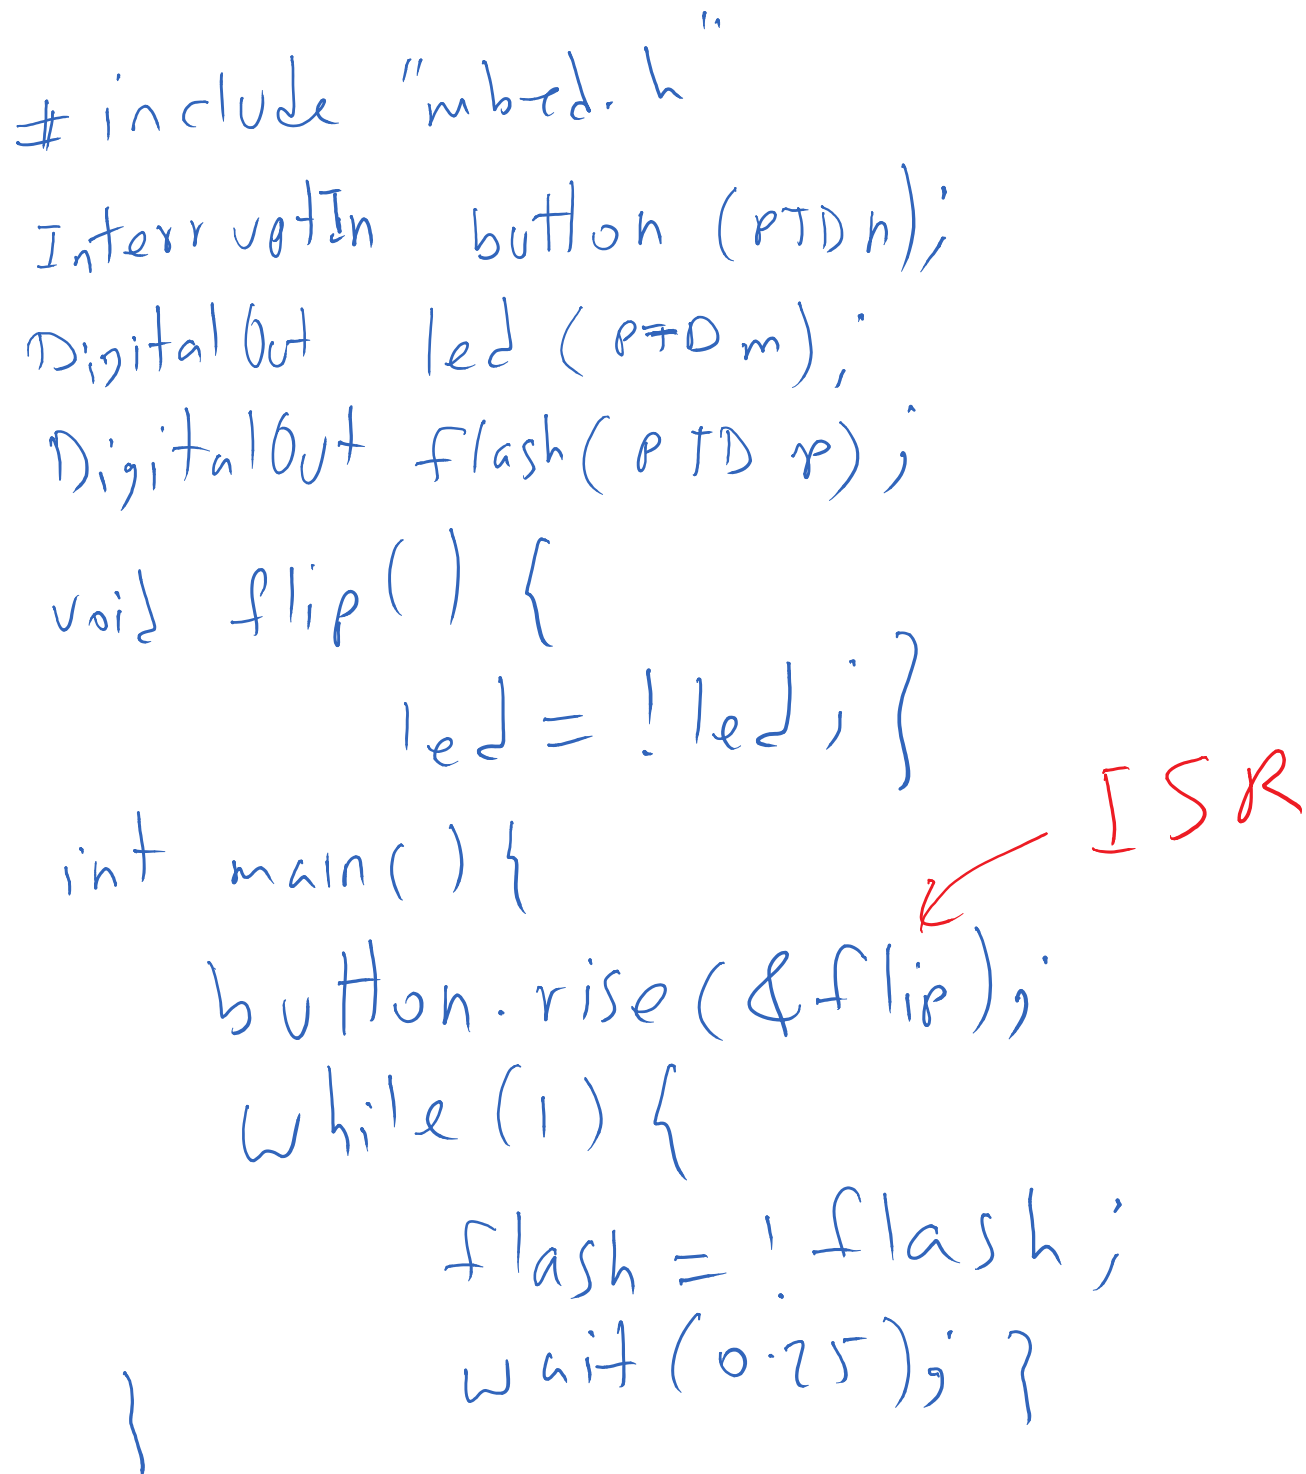 #include "mbed.h"
InterruptIn button (PTDn);
DigitalOut led (PTDm);
DigitalOut flash(PTDp);
void flip() {
led = !led; }
ISR
int main() {
button.rise(&flip);
while (1) {
flash = !flash;
wait (0.25); }
}